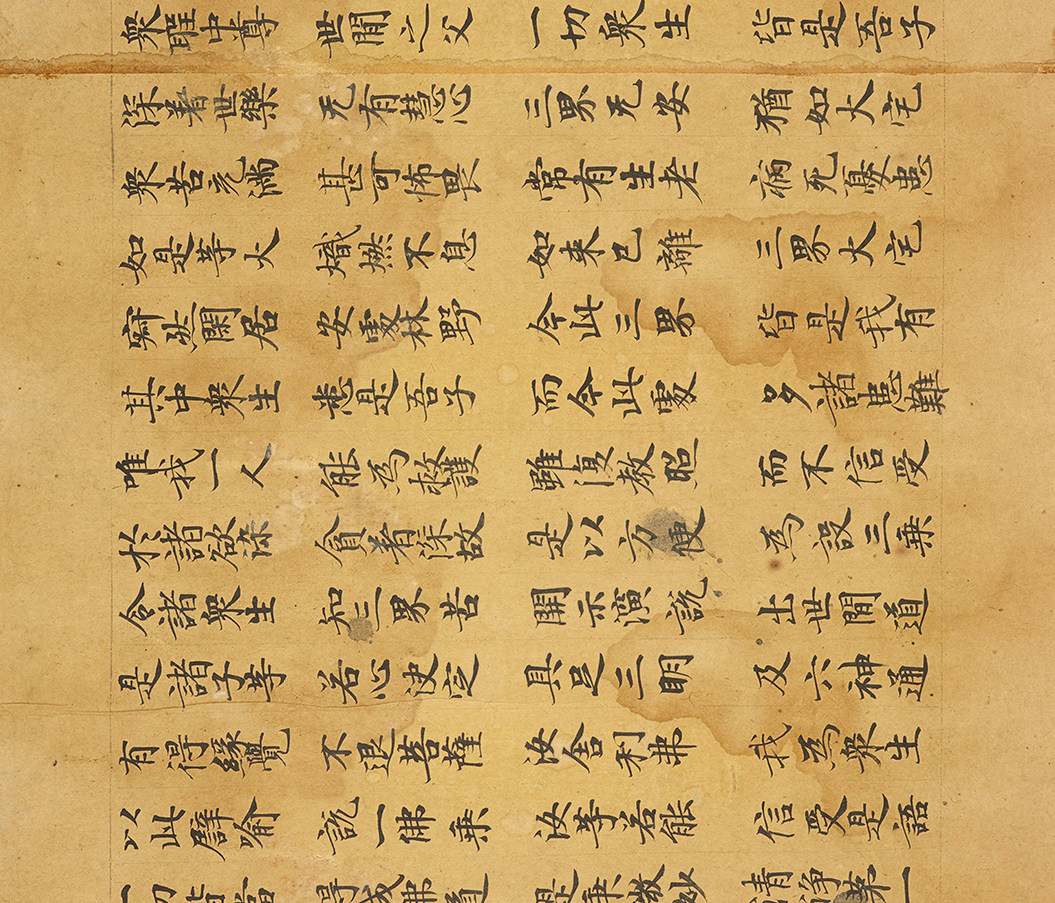 衆聖中尊 世間之父 一切衆生 皆是吾子
深著世樂 无有慧心 三界无安 猶如火宅
衆苦充滿 甚可怖畏 常有生老 病死憂患
如是等火 熾燃不息 如来已離 三界火宅
寂然閑居 安處林野 今此三界 皆是我有
其中衆生 悉是吾子 而今此處 多諸患難
唯我一人 能為救護 雖復教照 而不信受
於諸欲染 貪著深故 是以方便 為說三乗
令諸衆生 知三界苦 開示演說 出世間道
是諸子等 若心决定 具足三明 及六神通
有得緣覺 不退菩薩 汝舍利弗 我為衆生
以此譬喻 說一佛乗 汝等若能 信受是語
一切皆當 得成佛道 是乗微妙 清淨第一